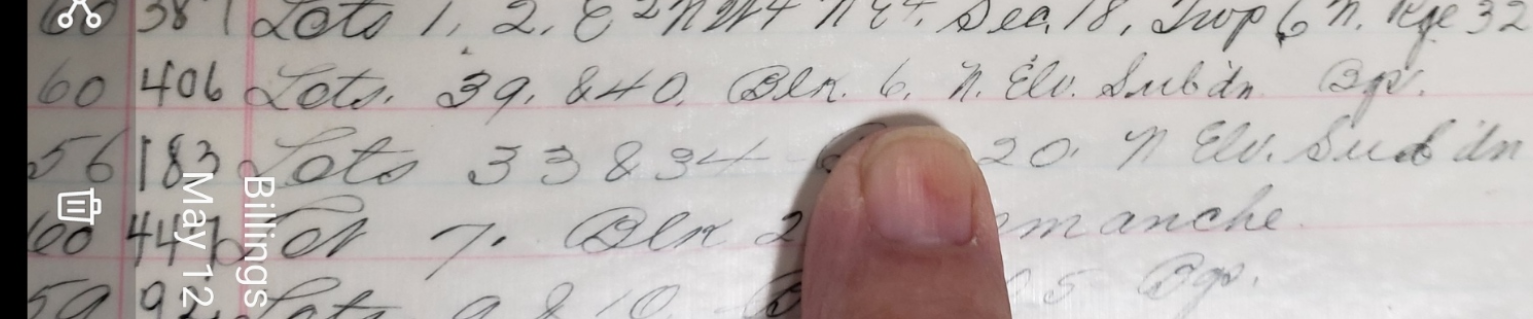 60 387 Lots 1, 2, E 2 NW4 NE4, Sec. 18, Twp 6 N. Rge 32
60 406 Lots. 39, &40, Blk. 6, N. Elv. Subdn Bgs.
56 183 Lots 33 & 34 20 N Elv. Subdn
60 447 Lot 7. Blk 2 manche.
59 92 Lots 9 & 10 5 Bgs.
Billings
May 12